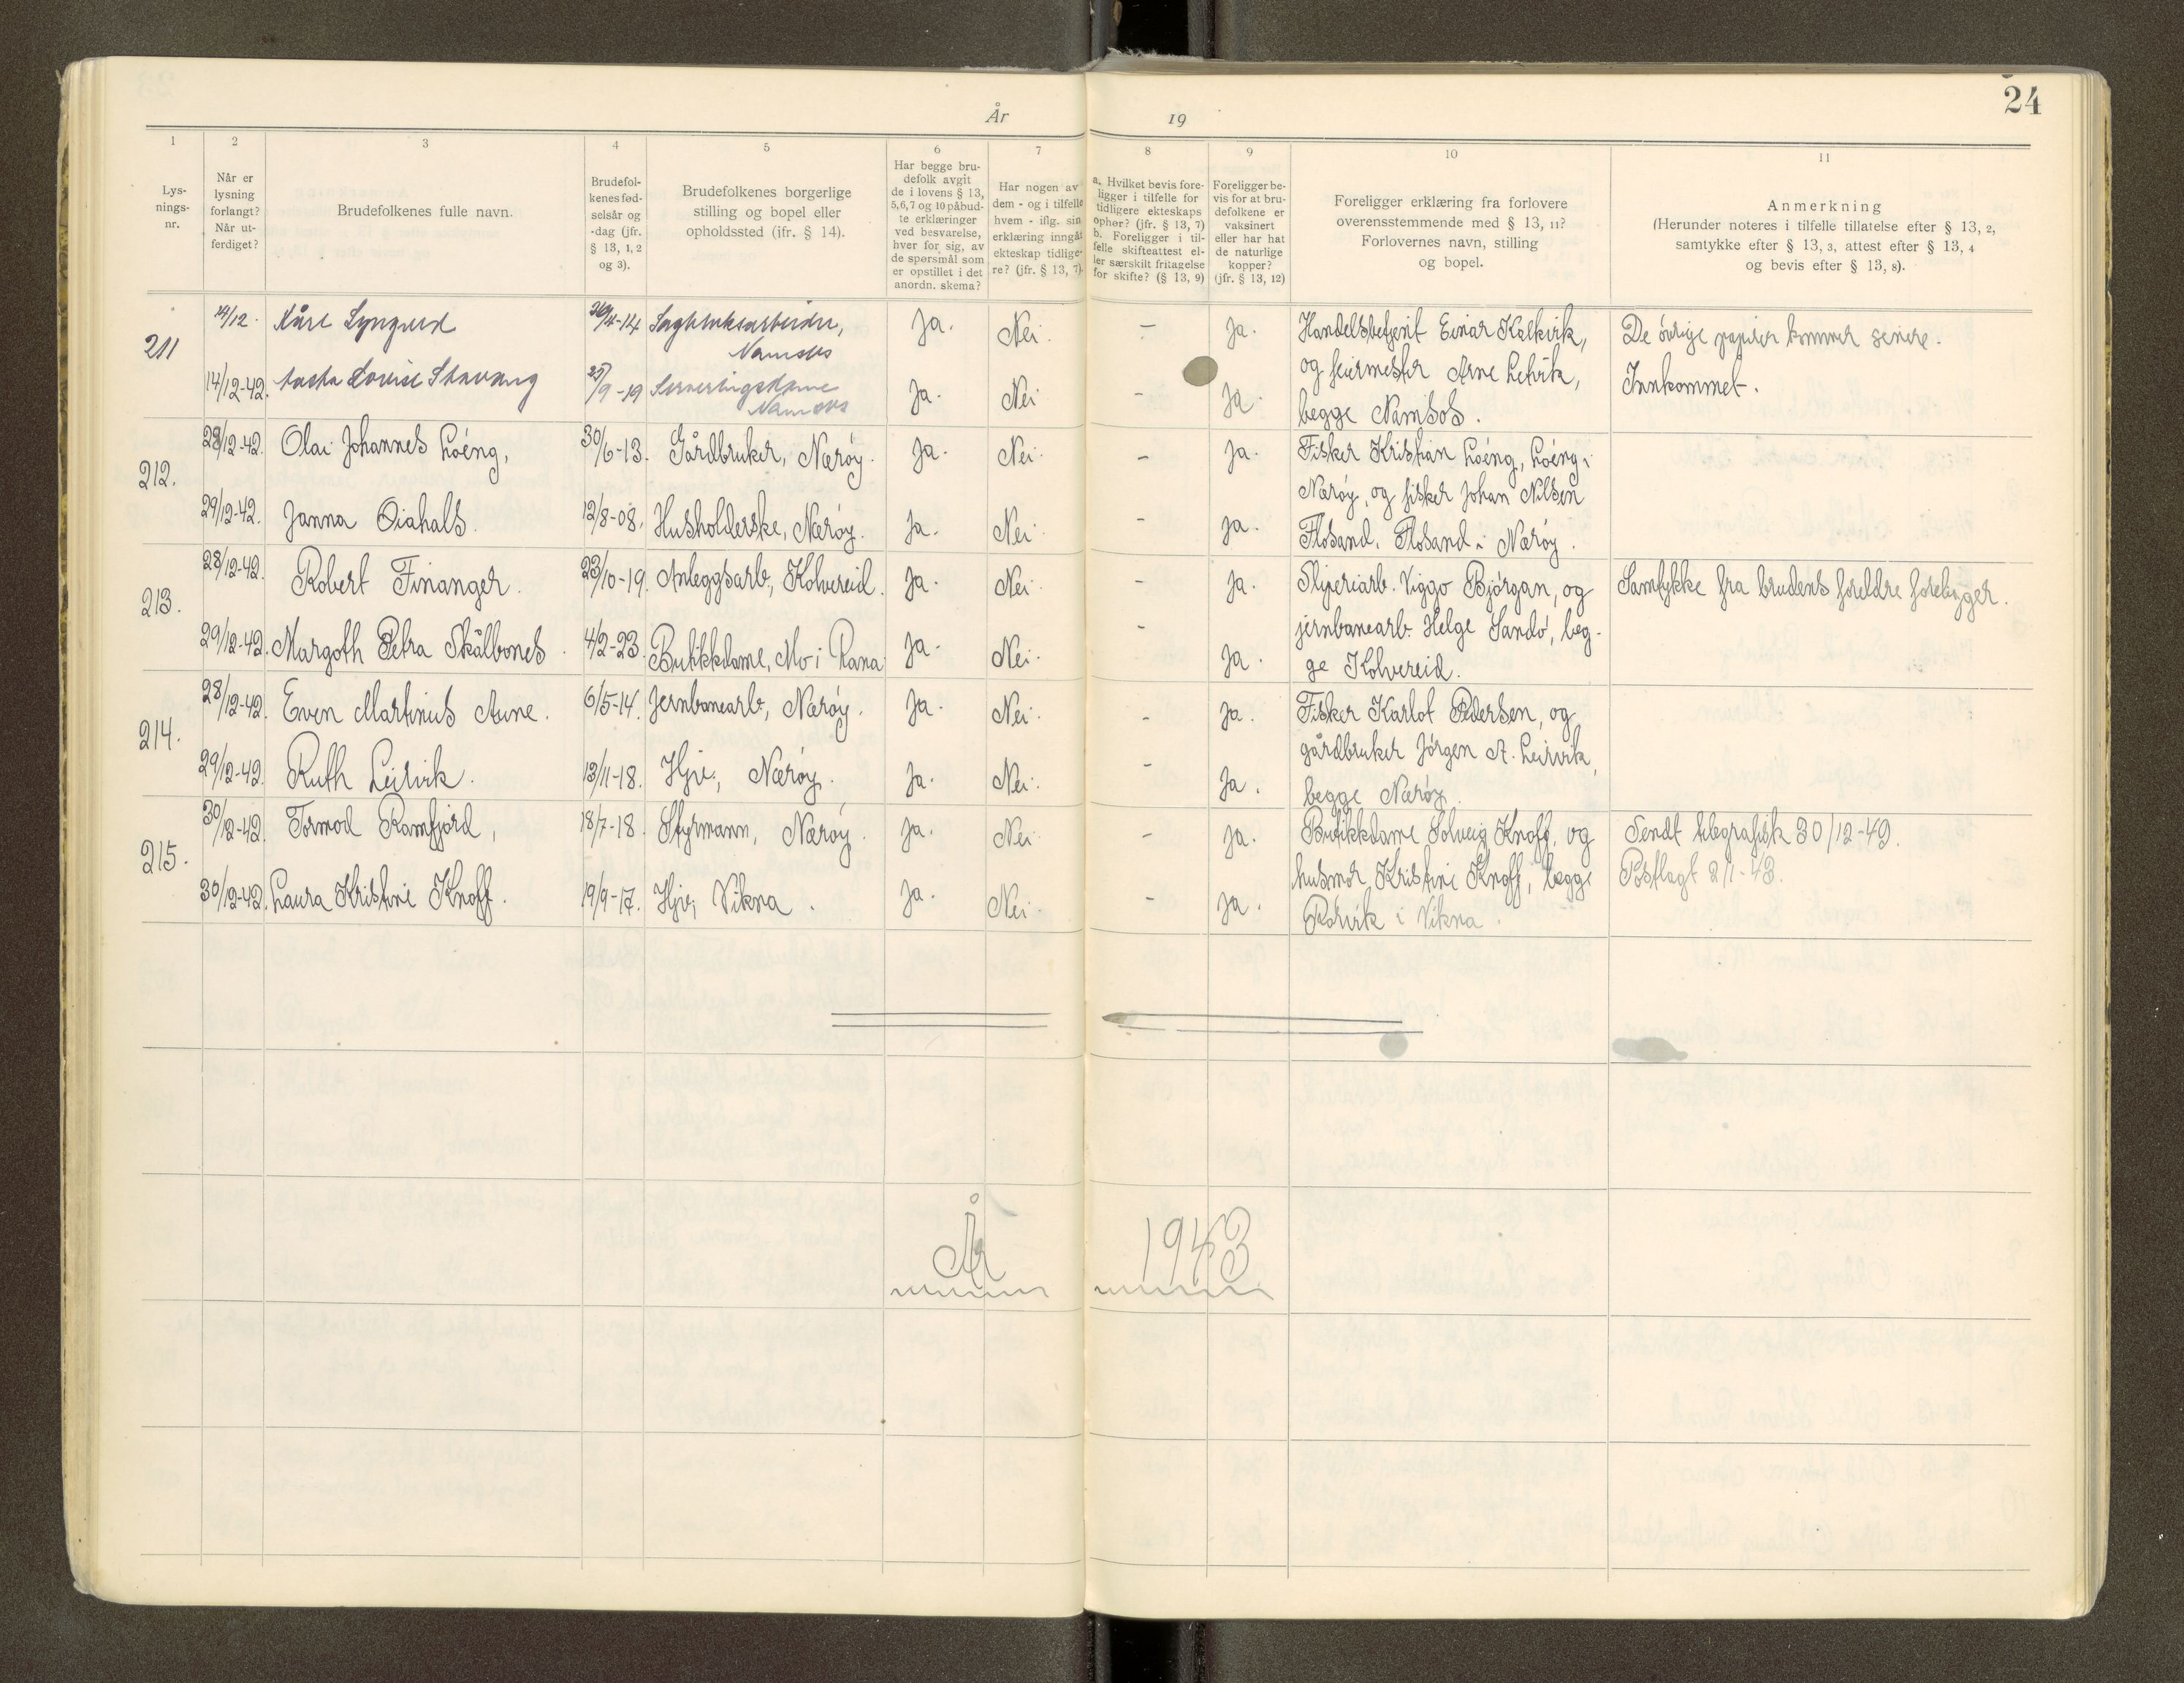 24
År 19
1 2 3 4 5 6 7 8 9 10 11
Lys-
nings-
nr.
Når er
lysning
forlangt?
Når ut-
ferdiget?
Brudefolkenes fulle navn.
Brudefol-
kenes fød-
selsår og
-dag (jfr.
§ 13, 1, 2
og 3).
Brudefolkenes borgerlige
stilling og bopel eller
opholdssted (ifr. § 14).
Har begge bru-
defolk avgit
de i lovens § 13,
5,6,7 og 10 påbud-
te erklæringer
ved besvarelse,
hver for sig, av
de spørsmål som
er opstillet i det
anordn. skema?
Har nogen av
dem - og i tilfelle
hvem - iflg. sin
erklæring inngåt
ekteskap tidlige-
re? (jfr. § 13, 7)
a. Hvilket bevis fore-
ligger i tilfelle for
tidligere ekteskaps
ophør? (jfr. § 13, 7)
b. Foreligger i til-
felle skifteattest el-
ler særskilt fritagelse
for skifte? (§ 13, 9)
Foreligger be-
vis for at bru-
defolkene er
vaksinert
eller har hat
de naturlige
kopper?
(jfr. § 13, 12)
Foreligger erklæring fra forlovere
overensstemmende med § 13, 11?
Forlovernes navn, stilling
og bopel.
Anmerkning
(Herunder noteres i tilfelle tillatelse efter § 13, 2,
samtykke efter § 13, 3, attest efter § 13, 4
og bevis efter § 13, 8).
211
14/12. Kåre Lyngved 26/4-14 Sagbruksarbeider,
Namsos
Ja. Nei. - Ja.
14/12-42. Aasta Lovise Stavang 25/9-19 Serveringsdame
Namsos
Ja. Nei - Ja.
Handelsbetjent Einar Kalkvik,
og feiermester Arne Letvik,
begge Namsos.
De øvrige papirer kommer senere.
Innkommet.
212.
28/12-42. Olai Johannes Løéng, 30/6-13. Gårdbruker, Nærøy. Ja. Nei. - Ja.
29/12-42. Janna Oiahals. 12/8-08. Husholderske, Nærøy. Ja. Nei. - Ja.
Fisker Kristian Løéng, Løéng i
Nærøy, og fisker Johan Nilsen
Flosand, Flosand i Nærøy.
213.
28/12-42. Robert Finanger. 23/10-19. Anleggsarb., Kolvereid. Ja. Nei. - Ja.
29/12-42. Margoth Petra Skålbones. 4/2-23. Butikkdame, Mo i Rana Ja. Nei. - Ja.
Sliperiarb. Viggo Bjørgan, og
jernbanearb. Helge Sandø, beg-
ge Kolvereid.
Samtykke fra brudens foreldre foreligger.
214.
28/12-42. Even Martinus Aune. 6/5-14. Jernbanearb., Nærøy. Ja. Nei. - Ja.
29/12-42. Ruth Leirvik. 13/11-18. Hjv., Nærøy. Ja. Nei. - Ja.
Fisker Karlot Pedersen, og
gårdbruker Jørgen A. Leirvik,
begge Nærøy.
215.
30/12-42. Tormod Ramfjord, 18/7-18. Styrmann, Nærøy. Ja. Nei - Ja.
30/12-42. Laura Kristine Knoff. 19/9-17. Hjv., Vikna. Ja. Nei. - Ja.
Butikkdame Solveig Knoff, og
husmor Kristine Knoff, begge
Rørvik i Vikna.
Sendt telegrafisk 30/12-42.
Postlagt 2/1-43.
År 1943